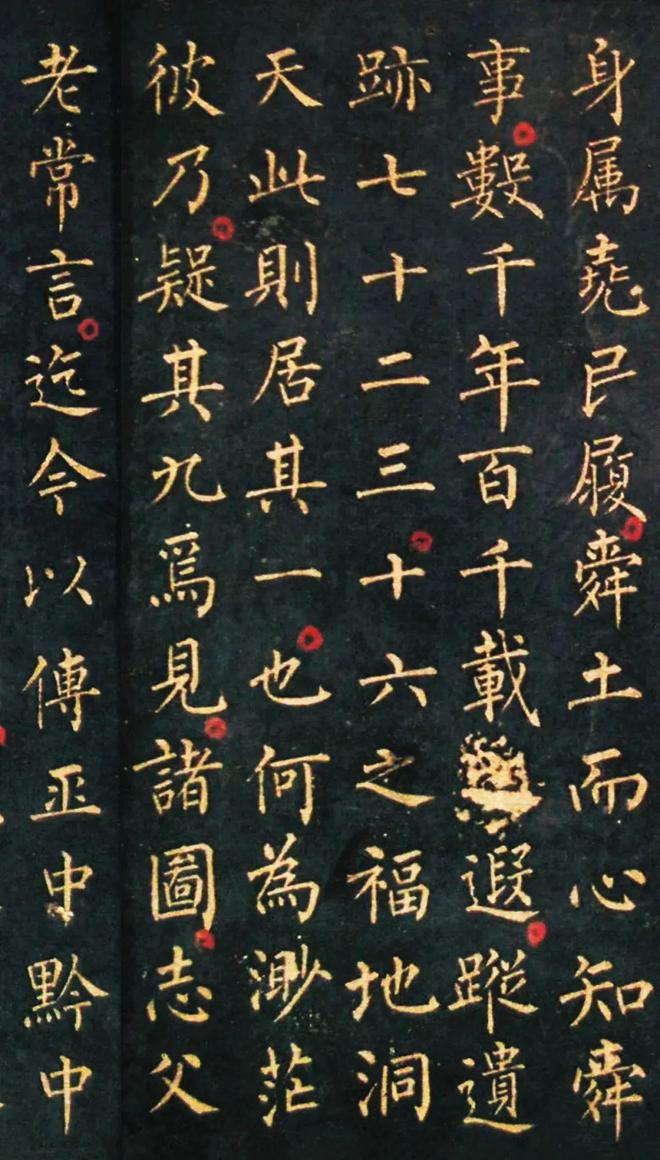 身属堯民履舜土而心知舜
事數千年百千載遐蹤遺
跡七十二三十六之福地洞
天此則居其一也何為渺茫
彼乃疑其九爲見諸圖志父
老常言迄今以傳巫中黔中